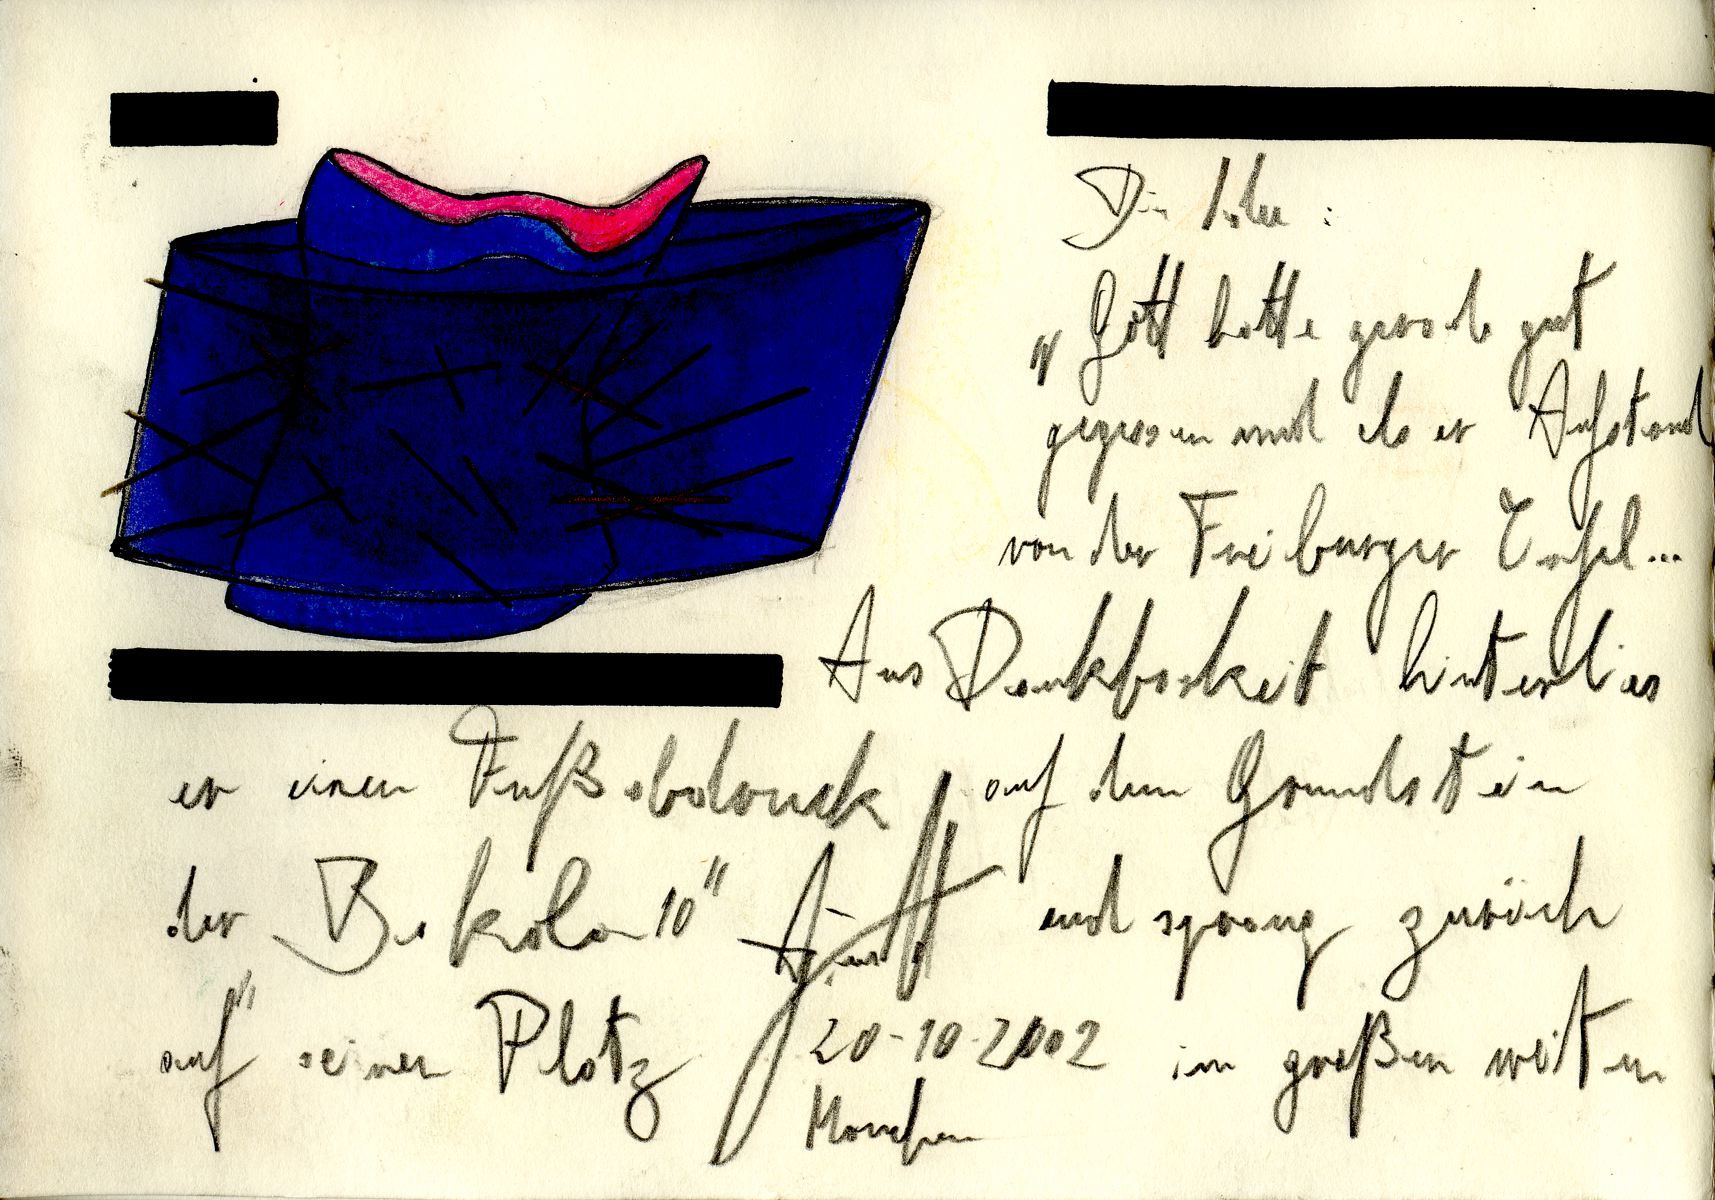 Die Idee :
„ Gott hatte gerade gut
gegessen und als er Aufstand
von der Freiburger Tafel...
Aus Dankbarkeit hinterlies
er einen Fußabdruck auf dem Grundstein
der 10" und sprang zurück
auf" seinen Platz im großen weiten
20-10-2002
München